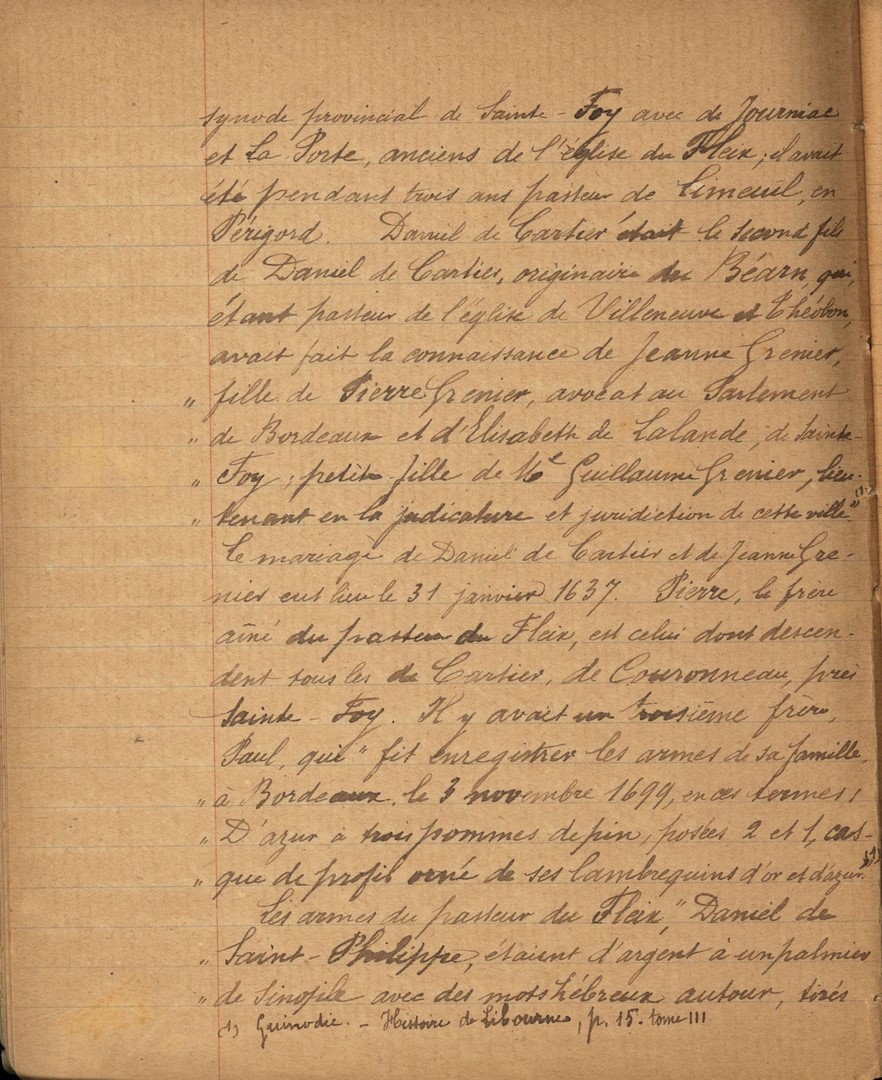 synode provincial de Sainte-Foy avec de Journiac
et La Porte, anciens de l'église du Fleix ; il avait
été pendant trois ans pasteur de Limeuil, en
Périgord. Daniel de Cartier était le second fils
de Daniel de Cartier, originaire du Béarn, qui,
étant pasteur de l'église de Villeneuve et Théobon,
avait fait la connaissance de Jeanne Grenier,
„ fille de Pierre Grenier, avocat au Parlement
„ de Bordeaux et d'Elisabeth de Lalande, de Sainte-
„ Foy ; petite-fille de Me Guillaume Grenier, lieu-
„ tenant en la judicature et juridiction de cette ville" (1)
Le mariage de Daniel de Cartier et de Jeanne Gre-
nier eut lieu le 31 janvier 1637. Pierre, le frère
aîné du pasteur du Fleix, est celui dont descen-
dent tous les de Cartier, de Couronneau, près
Sainte-Foy. Il y avait un troisième frère,
Paul, qui " fit enregistrer les armes de sa famille,
„ à Bordeaux, le 3 novembre 1699, en ces termes :
„ D'azur à trois pommes de pin, posées 2 et 1, cas-
„ que de profil orné de ses lambrequins d'or et d'azur." (1)
Les armes du pasteur du Fleix, " Daniel de
„ Saint-Philippe, étaient d'argent à un palmier
„ de Sinople avec des mots hébreux autour, tirés
(1) Guinodie. - Histoire de Libourne, p. 15. tome III